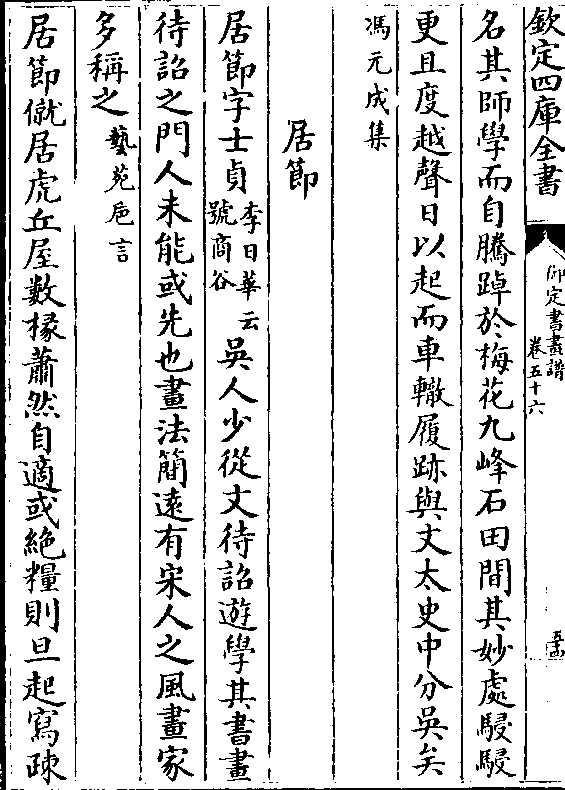 欽定四庫全書
御定書畫譜
卷五十六
名其師學而自騰踔於梅花九峰石田間其妙處駸駸
更且度越聲日以起而車轍履跡與文太史中分吳矣
馮元成集
居節
居節字士貞李日華云
號商谷吳人少從文待詔遊學其書畫
待詔之門人未能或先也畫法簡遠有宋人之風畫家
多稱之藝苑巵言
居節僦居虎丘屋數椽蕭然自適或絶糧則旦起寫疎